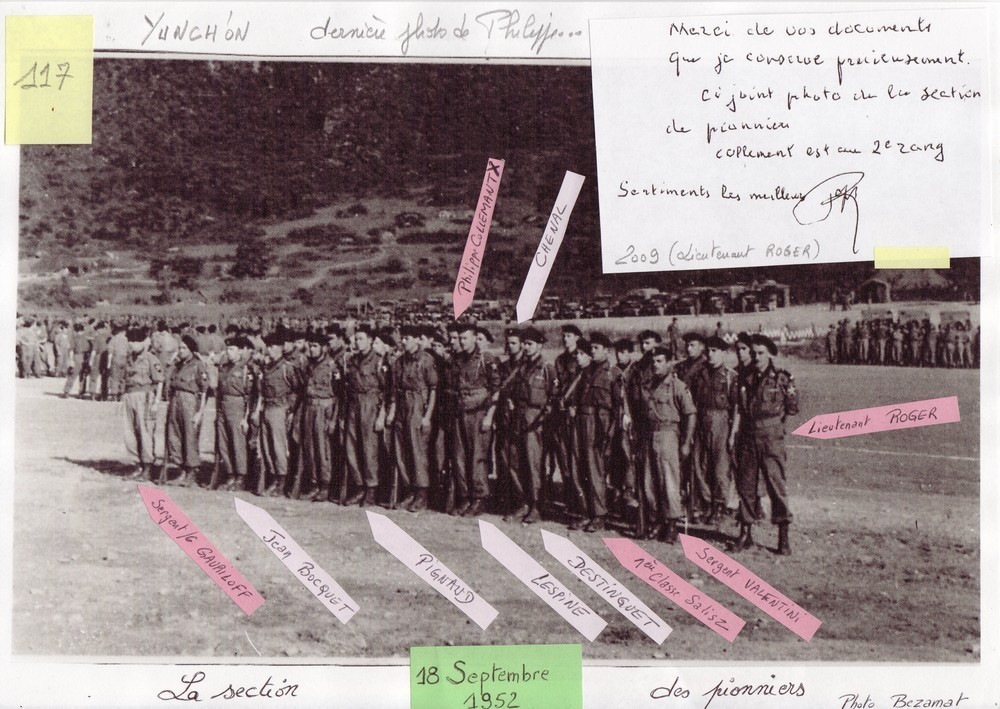 YUNCH'ÓN dernière photo de Philippe...
117
Merci de vos documents
que je conserve précieusement.
ci joint photo de la section
de pionniers
collement est au 2e rang
Sentiments les meilleurs
2009 (Lieutenant ROGER)
Philippe COLLEMANT X
CHENAL
Lieutenant ROGER
Sergent/G GAVRILOFF
Jean BOCQUET
PIGNAUD
LESPINE
DESTINGUET
1ère Classe Salisz
Sergent VALENTINI
La section des pionniers
18 Septembre
1952
Photo Bezamat